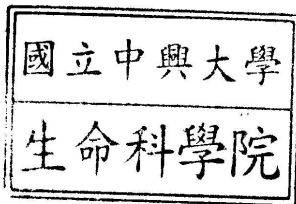 國立中興大學
生命科學院